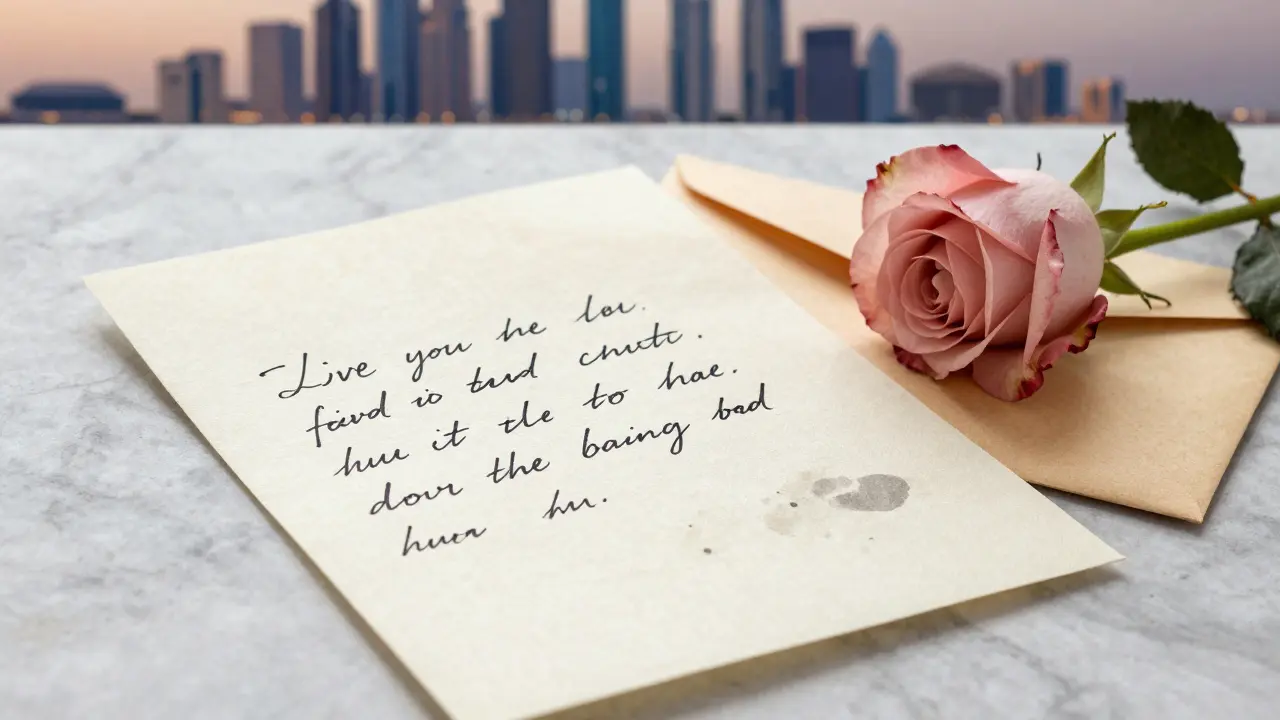 Live you he lou.
fàvd io tud chutc.
huu it tle to hae.
dovr the baing bad
huur hu.